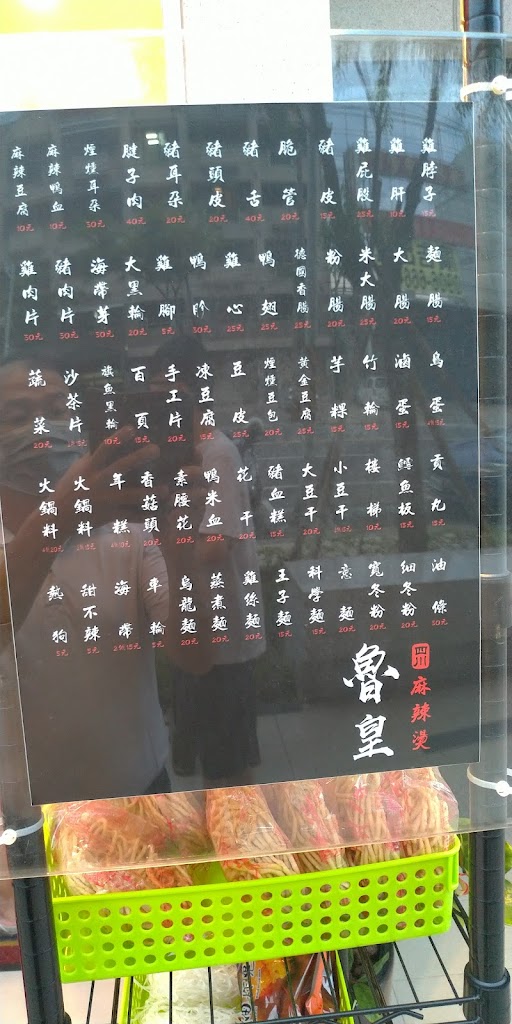 雞脖子 15元
雞肝 10元
雞屁股 25元
豬皮 15元
脆管 20元
豬舌 40元
豬頭皮 20元
豬耳朵 20元
腱子肉 40元
煙燻耳朵 30元
麻辣鴨血 10元
麻辣豆腐 10元
麵腸 15元
大腸
米大腸 25元
粉腸
德國香腸 25元
鴨翅 25元
雞心 25元
鴨胗 30元
雞腳 5元
大黑輪 20元
海帶芽 30元
豬肉片 30元
雞肉片 30元
鳥蛋
滷蛋 15元
竹輪 15元
芋粿 15元
黃金豆腐 25元
煙燻豆包 20元
豆皮 25元
凍豆腐 15元
手工片 20元
百頁 15元
旗魚黑輪 10元
沙茶片
蔬菜 20元
貢丸
鱈魚板 15元
樓梯 10元
小豆干
大豆干
豬血糕 25元
花干 20元
鴨米血 20元
素腰花 20元
香菇頭 20元
年糕
火鍋料
火鍋料
油條 30元
細冬粉 20元
寬冬粉 20元
意麵 20元
科學麵 15元
王子麵 15元
雞絲麵 20元
蒸煮麵 20元
烏龍麵 20元
車輪 5元
海帶
甜不辣 5元
熱狗 5元
四川
麻辣燙
魯皇